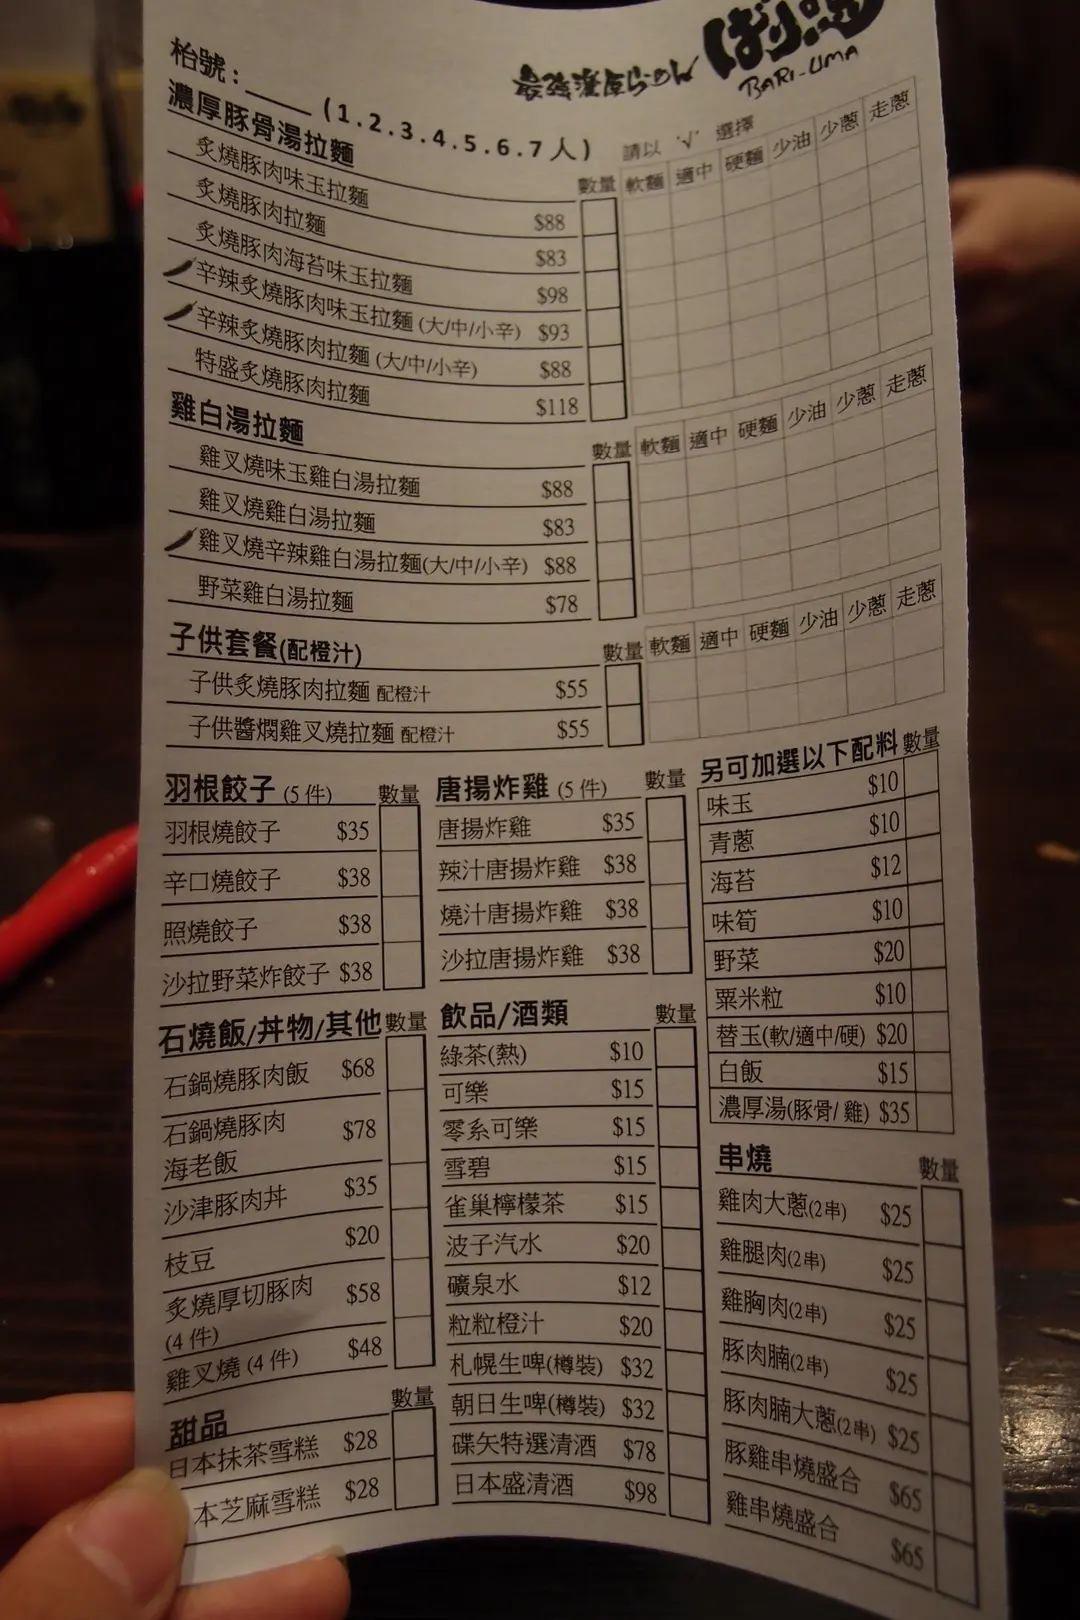 最強濃厚らーめん ばり馬
BARI-UMA
枱號:____(1.2.3.4.5.6.7人)
請以 '√' 選擇
濃厚豚骨湯拉麵 數量 軟麵 適中 硬麵 少油 少蔥 走蔥
炙燒豚肉味玉拉麵 $88
炙燒豚肉拉麵 $83
炙燒豚肉海苔味玉拉麵 $98
辛辣炙燒豚肉味玉拉麵 (大/中/小辛) $93
辛辣炙燒豚肉拉麵 (大/中/小辛) $88
特盛炙燒豚肉拉麵 $118
雞白湯拉麵 數量 軟麵 適中 硬麵 少油 少蔥 走蔥
雞叉燒味玉雞白湯拉麵 $88
雞叉燒雞白湯拉麵 $83
雞叉燒辛辣雞白湯拉麵(大/中/小辛) $88
野菜雞白湯拉麵 $78
子供套餐(配橙汁) 數量 軟麵 適中 硬麵 少油 少蔥 走蔥
子供炙燒豚肉拉麵 配橙汁 $55
子供醬燜雞叉燒拉麵 配橙汁 $55
羽根餃子 (5 件) 數量
羽根燒餃子 $35
辛口燒餃子 $38
照燒餃子 $38
沙拉野菜炸餃子 $38
石燒飯/丼物/其他 數量
石鍋燒豚肉飯 $68
石鍋燒豚肉
海老飯 $78
沙津豚肉丼 $35
枝豆 $20
炙燒厚切豚肉
(4 件) $58
雞叉燒 (4 件) $48
甜品 數量
日本抹茶雪糕 $28
本芝麻雪糕 $28
唐揚炸雞 (5 件) 數量
唐揚炸雞 $35
辣汁唐揚炸雞 $38
燒汁唐揚炸雞 $38
沙拉唐揚炸雞 $38
飲品/酒類 數量
綠茶(熱) $10
可樂 $15
零系可樂 $15
雪碧 $15
雀巢檸檬茶 $15
波子汽水 $20
礦泉水 $12
粒粒橙汁 $20
札幌生啤(樽裝) $32
朝日生啤(樽裝) $32
碟矢特選清酒 $78
日本盛清酒 $98
另可加選以下配料 數量
味玉 $10
青蔥 $10
海苔 $12
味筍 $10
野菜 $20
粟米粒 $10
替玉(軟/適中/硬) $20
白飯 $15
濃厚湯(豚骨/ 雞) $35
串燒 數量
雞肉大蔥(2串) $25
雞腿肉(2串) $25
雞胸肉(2串) $25
豚肉腩(2串) $25
豚肉腩大蔥(2串) $25
豚雞串燒盛合 $65
雞串燒盛合 $65